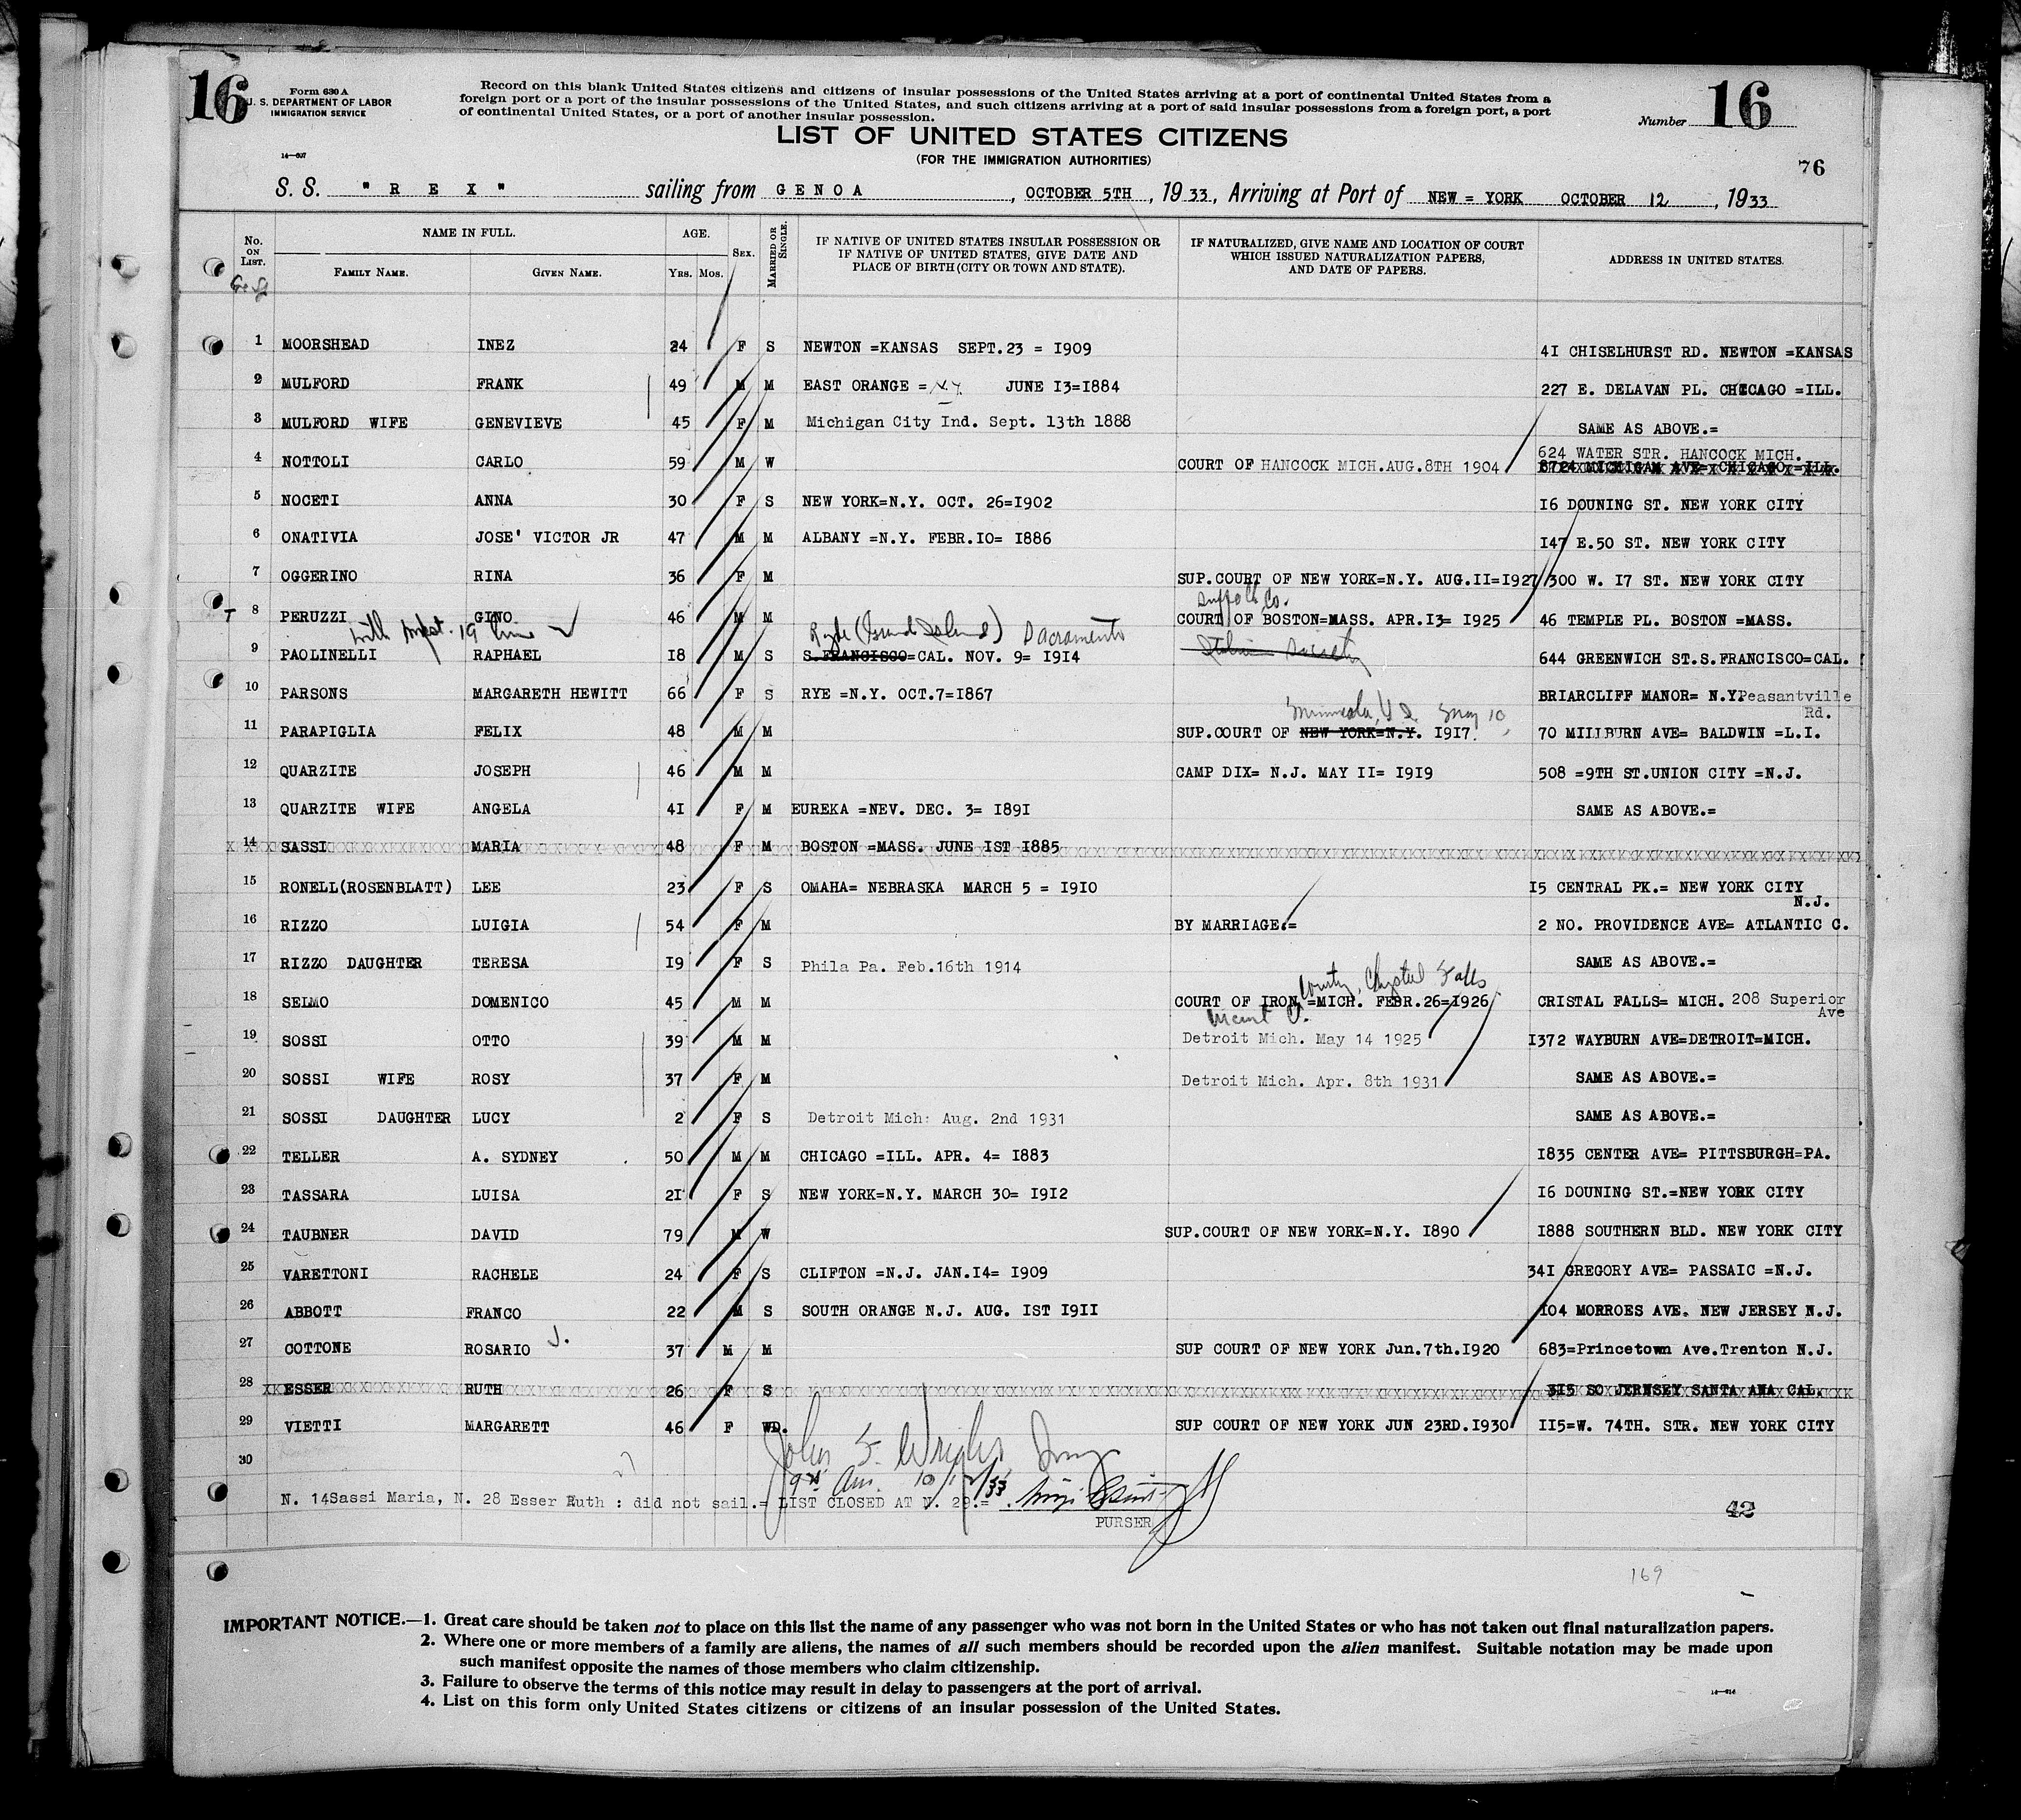 16
Form 630 A
U. S. DEPARTMENT OF LABOR
IMMIGRATION SERVICE
14—607
Record on this blank United States citizens and citizens of insular possessions of the United States arriving at a port of continental United States from a
foreign port or a port of the insular possessions of the United States, and such citizens arriving at a port of said insular possessions from a foreign port, a port
of continental United States, or a port of another insular possession.
Number 16
LIST OF UNITED STATES CITIZENS
(FOR THE IMMIGRATION AUTHORITIES)
76
S. S. " R E X " sailing from GENOA, OCTOBER 5TH, 1933, Arriving at Port of NEW = YORK OCTOBER 12, 1933
No. ON LIST. NAME IN FULL. FAMILY NAME. GIVEN NAME. AGE. Yrs. Mos. SEX. MARRIED OR SINGLE. IF NATIVE OF UNITED STATES INSULAR POSSESSION OR IF NATIVE OF UNITED STATES, GIVE DATE AND PLACE OF BIRTH (CITY OR TOWN AND STATE). IF NATURALIZED, GIVE NAME AND LOCATION OF COURT WHICH ISSUED NATURALIZATION PAPERS, AND DATE OF PAPERS. ADDRESS IN UNITED STATES.
1 MOORSHEAD INEZ 24 F S NEWTON =KANSAS SEPT.23 = I909 4I CHISELHURST RD. NEWTON =KANSAS
2 MULFORD FRANK 49 M M EAST ORANGE = N.Y. JUNE I3=I884 227 E. DELAVAN PL. CHICAGO =ILL.
3 MULFORD WIFE GENEVIEVE 45 F M Michigan City Ind. Sept. 13th 1888 SAME AS ABOVE.=
624 WATER STR. HANCOCK MICH.
4 NOTTOLI CARLO 59 M W COURT OF HANCOCK MICH.AUG.8TH 1904 8724 MICHIGAN AVE= CHICAGO =ILL.
5 NOCETI ANNA 30 F S NEW YORK=N.Y. OCT. 26=I902 I6 DOUNING ST. NEW YORK CITY
6 ONATIVIA JOSE' VICTOR JR 47 M M ALBANY =N.Y. FEBR.IO= I886 I47 E.50 ST. NEW YORK CITY
7 OGGERINO RINA 36 F M SUP.COURT OF NEW YORK=N.Y. AUG.II=I927 300 W. I7 ST. NEW YORK CITY
Suffolk Co.
T 8 PERUZZI GINO 46 M M COURT OF BOSTON=MASS. APR.I3= I925 46 TEMPLE PL. BOSTON =MASS.
Ryde (Grand Island) Sacramento
9 PAOLINELLI RAPHAEL I8 M S S.FRANCISCO=CAL. NOV. 9= I9I4 644 GREENWICH ST.S.FRANCISCO=CAL.
10 PARSONS MARGARETH HEWITT 66 F S RYE =N.Y. OCT.7=I867 BRIARCLIFF MANOR= N.Y.Peasantville
Rd.
Mineola, L I. May 10
11 PARAPIGLIA FELIX 48 M M SUP.COURT OF NEW YORK=N.Y. I9I7. 70 MILLBURN AVE= BALDWIN =L.I.
12 QUARZITE JOSEPH 46 M M CAMP DIX= N.J. MAY II= I9I9 508 =9TH ST.UNION CITY =N.J.
13 QUARZITE WIFE ANGELA 4I F M EUREKA =NEV. DEC. 3= I89I SAME AS ABOVE.=
14 SASSI MARIA 48 F M BOSTON =MASS. JUNE IST I885
15 RONELL(ROSENBLATT) LEE 23 F S OMAHA= NEBRASKA MARCH 5 = I9IO I5 CENTRAL PK.= NEW YORK CITY
N.J.
16 RIZZO LUIGIA 54 F M BY MARRIAGE.= 2 NO. PROVIDENCE AVE= ATLANTIC C.
17 RIZZO DAUGHTER TERESA I9 F S Phila Pa. Feb.16th 1914 SAME AS ABOVE.=
County, Chystal Falls
18 SELMO DOMENICO 45 M M COURT OF IRON =MICH. FEBR.26=I926 CRISTAL FALLS= MICH. 208 Superior
Ave
19 SOSSI OTTO 39 M M Detroit Mich. May 14 1925 I372 WAYBURN AVE=DETROIT=MICH.
20 SOSSI WIFE ROSY 37 F M Detroit Mich. Apr. 8th 1931 SAME AS ABOVE.=
21 SOSSI DAUGHTER LUCY 2 F S Detroit Mich: Aug. 2nd 1931 SAME AS ABOVE.=
22 TELLER A. SYDNEY 50 M M CHICAGO =ILL. APR. 4= I883 I835 CENTER AVE= PITTSBURGH=PA.
23 TASSARA LUISA 2I F S NEW YORK=N.Y. MARCH 30= I9I2 I6 DOUNING ST.=NEW YORK CITY
24 TAUBNER DAVID 79 M W SUP.COURT OF NEW YORK=N.Y. I890 I888 SOUTHERN BLD. NEW YORK CITY
25 VARETTONI RACHELE 24 F S CLIFTON =N.J. JAN.I4= I909 34I GREGORY AVE= PASSAIC =N.J.
26 ABBOTT FRANCO 22 M S SOUTH ORANGE N.J. AUG. IST I9II I04 MORROES AVE. NEW JERSEY N.J.
27 COTTONE ROSARIO J. 37 M M SUP COURT OF NEW YORK Jun.7th.I920 683=Princetown Ave.Trenton N.J.
28 ESSER RUTH 26 F S 3I5 SO JERNSEY SANTA ANA CAL.
29 VIETTI MARGARETT 46 F WD. SUP COURT OF NEW YORK JUN 23RD.I930 II5=W. 74TH. STR. NEW YORK CITY
30 John F. Wright, Insp
10/12/33
N. 14Sassi Maria, N. 28 Esser Ruth : did not sail.= LIST CLOSED AT N. 29.=
PURSER
42
169
IMPORTANT NOTICE.—1. Great care should be taken not to place on this list the name of any passenger who was not born in the United States or who has not taken out final naturalization papers.
2. Where one or more members of a family are aliens, the names of all such members should be recorded upon the alien manifest. Suitable notation may be made upon
such manifest opposite the names of those members who claim citizenship.
3. Failure to observe the terms of this notice may result in delay to passengers at the port of arrival.
4. List on this form only United States citizens or citizens of an insular possession of the United States.